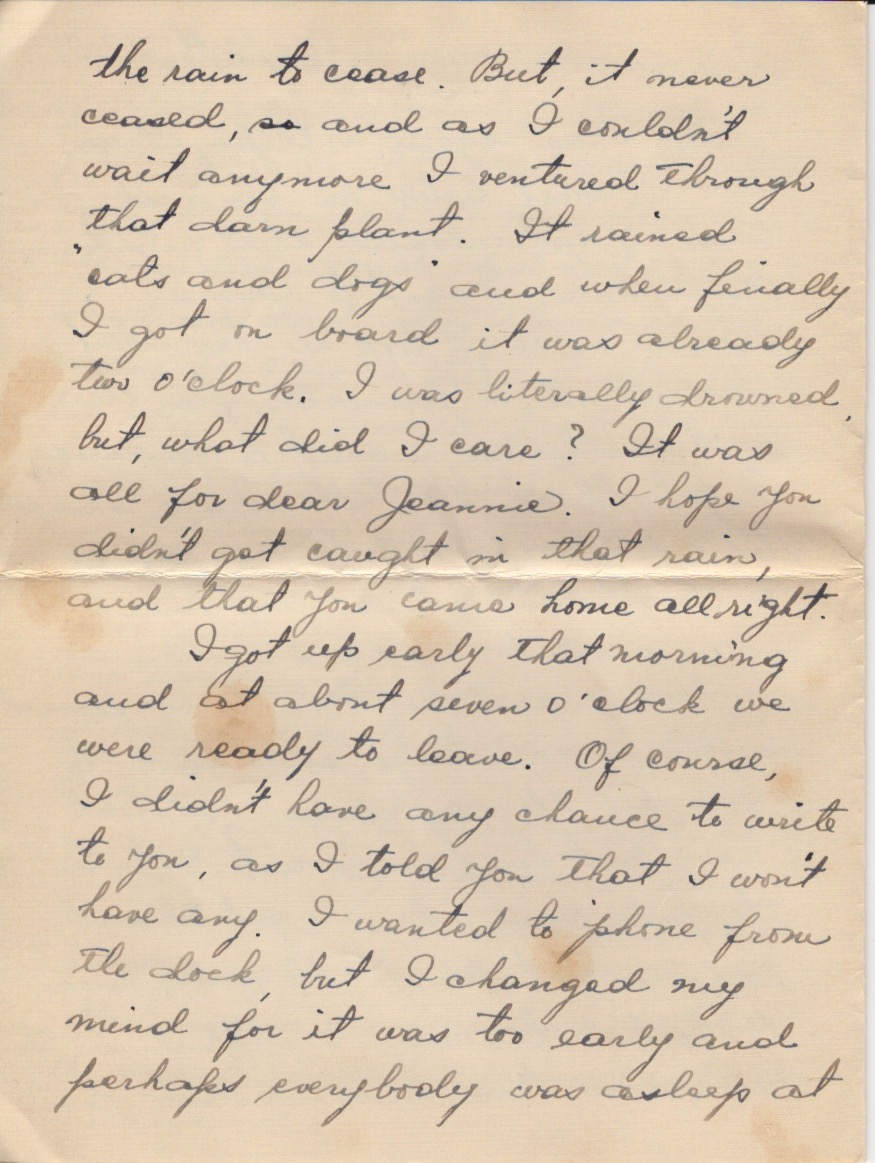 the rain to cease. But, it never
ceased, so and as I couldn't
wait anymore I ventured through
that darn plant. It rained
"cats and dogs" and when finally
I got on board it was already
two o'clock. I was literally drowned,
but, what did I care? It was
all for dear Jeannie. I hope you
didn't get caught in that rain,
and that you came home allright.
I got up early that morning
and at about seven o'clock we
were ready to leave. Of course,
I didn't have any chance to write
to you, as I told you that I won't
have any. I wanted to 'phone from
the dock, but I changed my
mind for it was too early and
perhaps everybody was asleep at